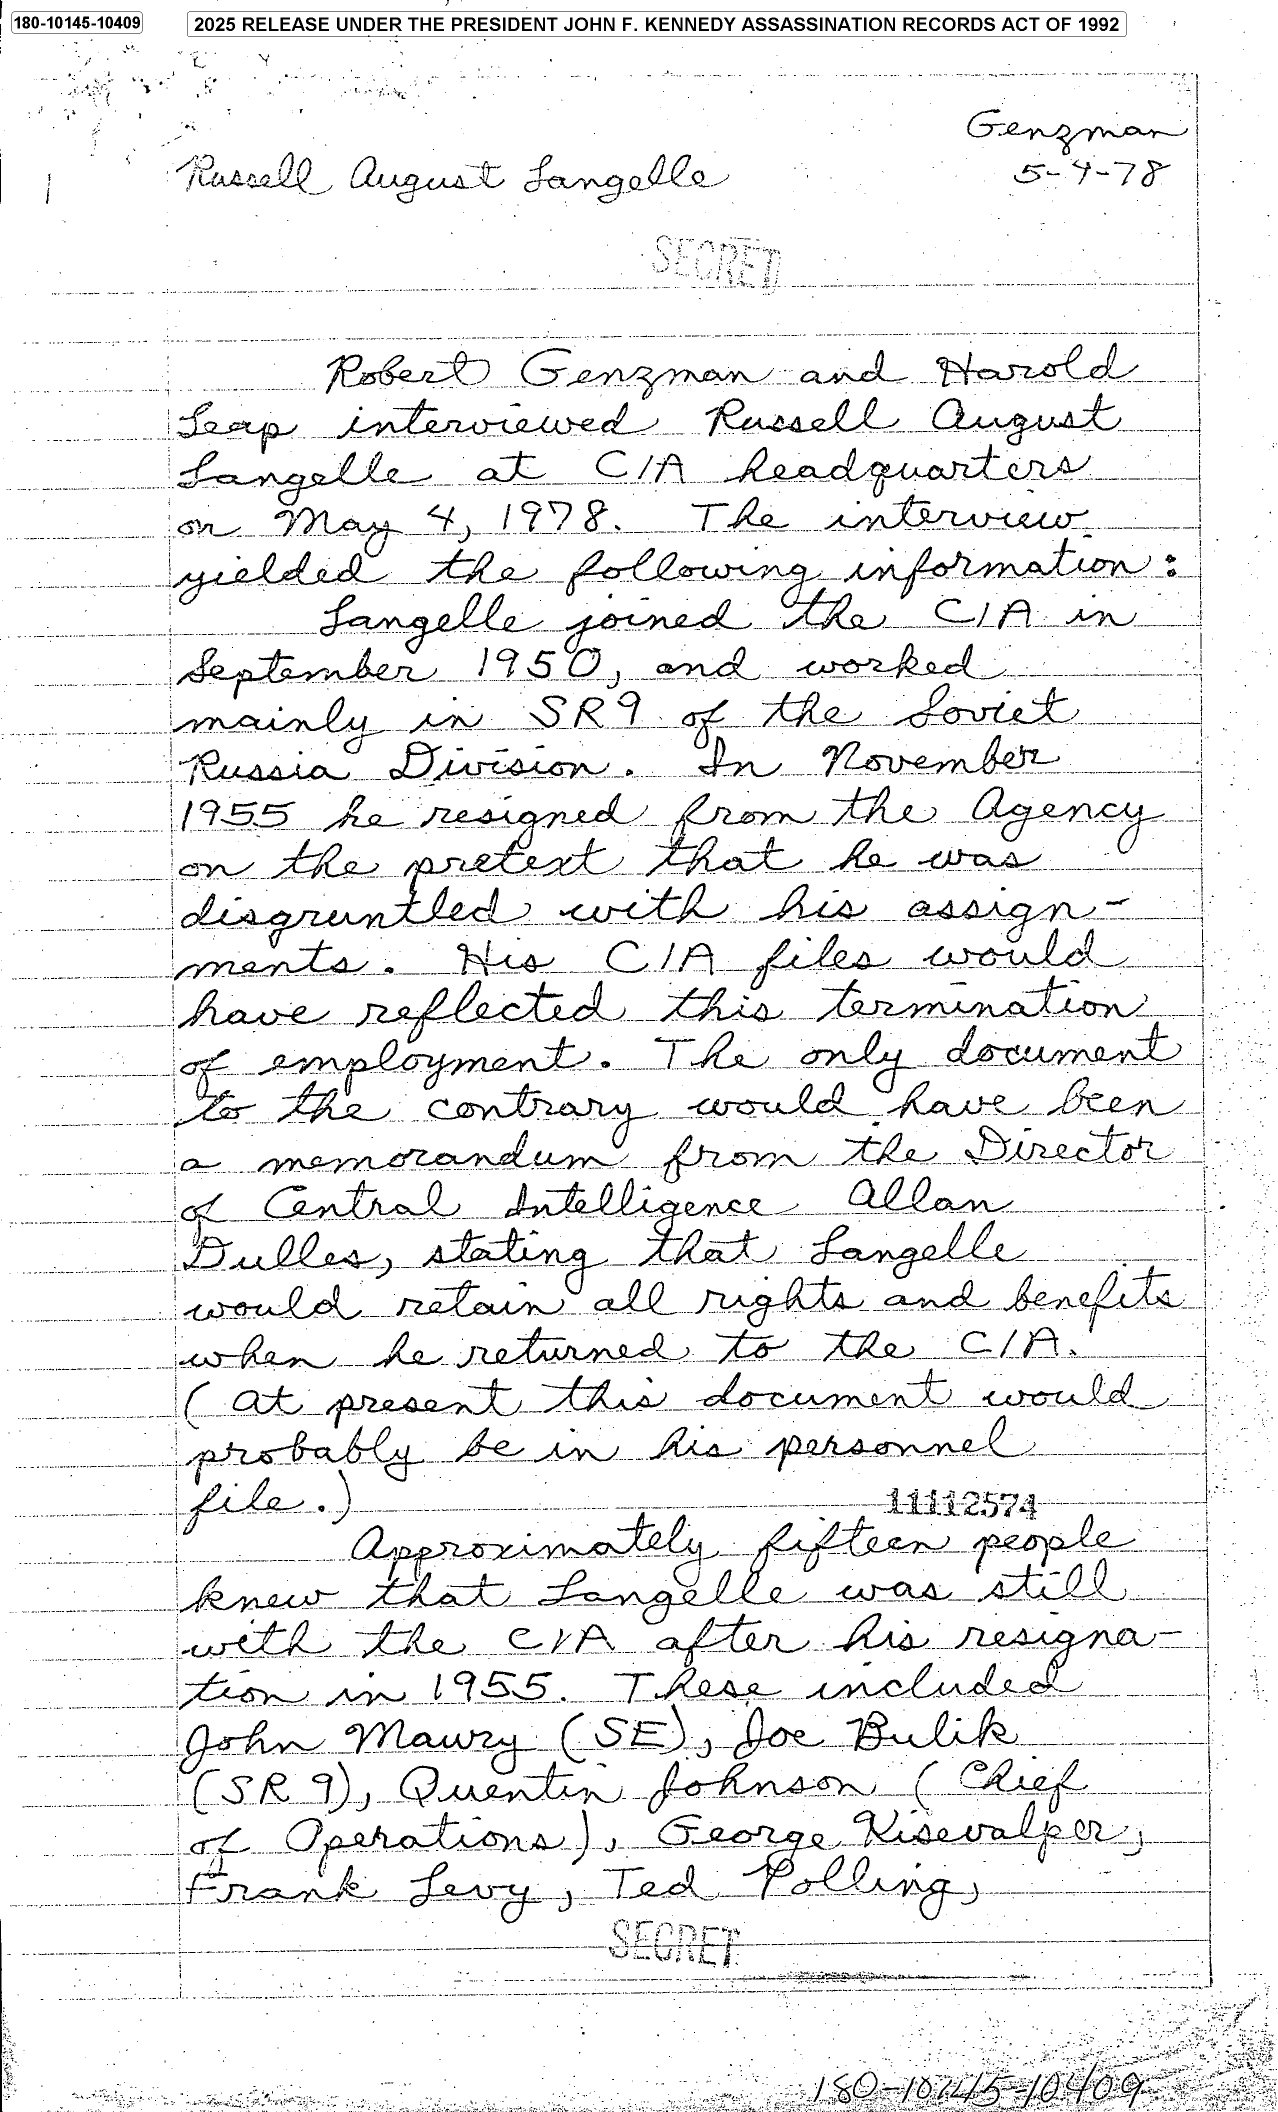 180-10145-10409
2025 RELEASE UNDER THE PRESIDENT JOHN F. KENNEDY ASSASSINATION RECORDS ACT OF 1992
Genzman
Russell August Langelle
5-4-78
SECRET
Robert Genzman and Harold
Leap interviewed Russell August
Langelle at CIA headquarters
on May 4, 1978. The interview
yielded the following information:
Langelle joined the CIA in
September 1950, and worked
mainly in SR9 of the Soviet
Russia Division. In November
1955 he resigned from the Agency
on the pretext that he was
disgruntled with his assign-
ments. His CIA files would
have reflected this termination
of employment. The only document
to the contrary would have been
a memorandum from the Director
of Central Intelligence Allan
Dulles, stating that Langelle
would retain all rights and benefits
when he returned to the CIA.
(At present this document would
probably be in his personnel
file.)
11112574
Approximately fifteen people
knew that Langelle was still
with the CIA after his resigna-
tion in 1955. These included
John Maury (SE), Joe Bulik
(SR 9), Quentin Johnson (Chief
of Operations), George Kisevalper,
Frank Levy, Ted Polling,
SECRET
180-10145-10409